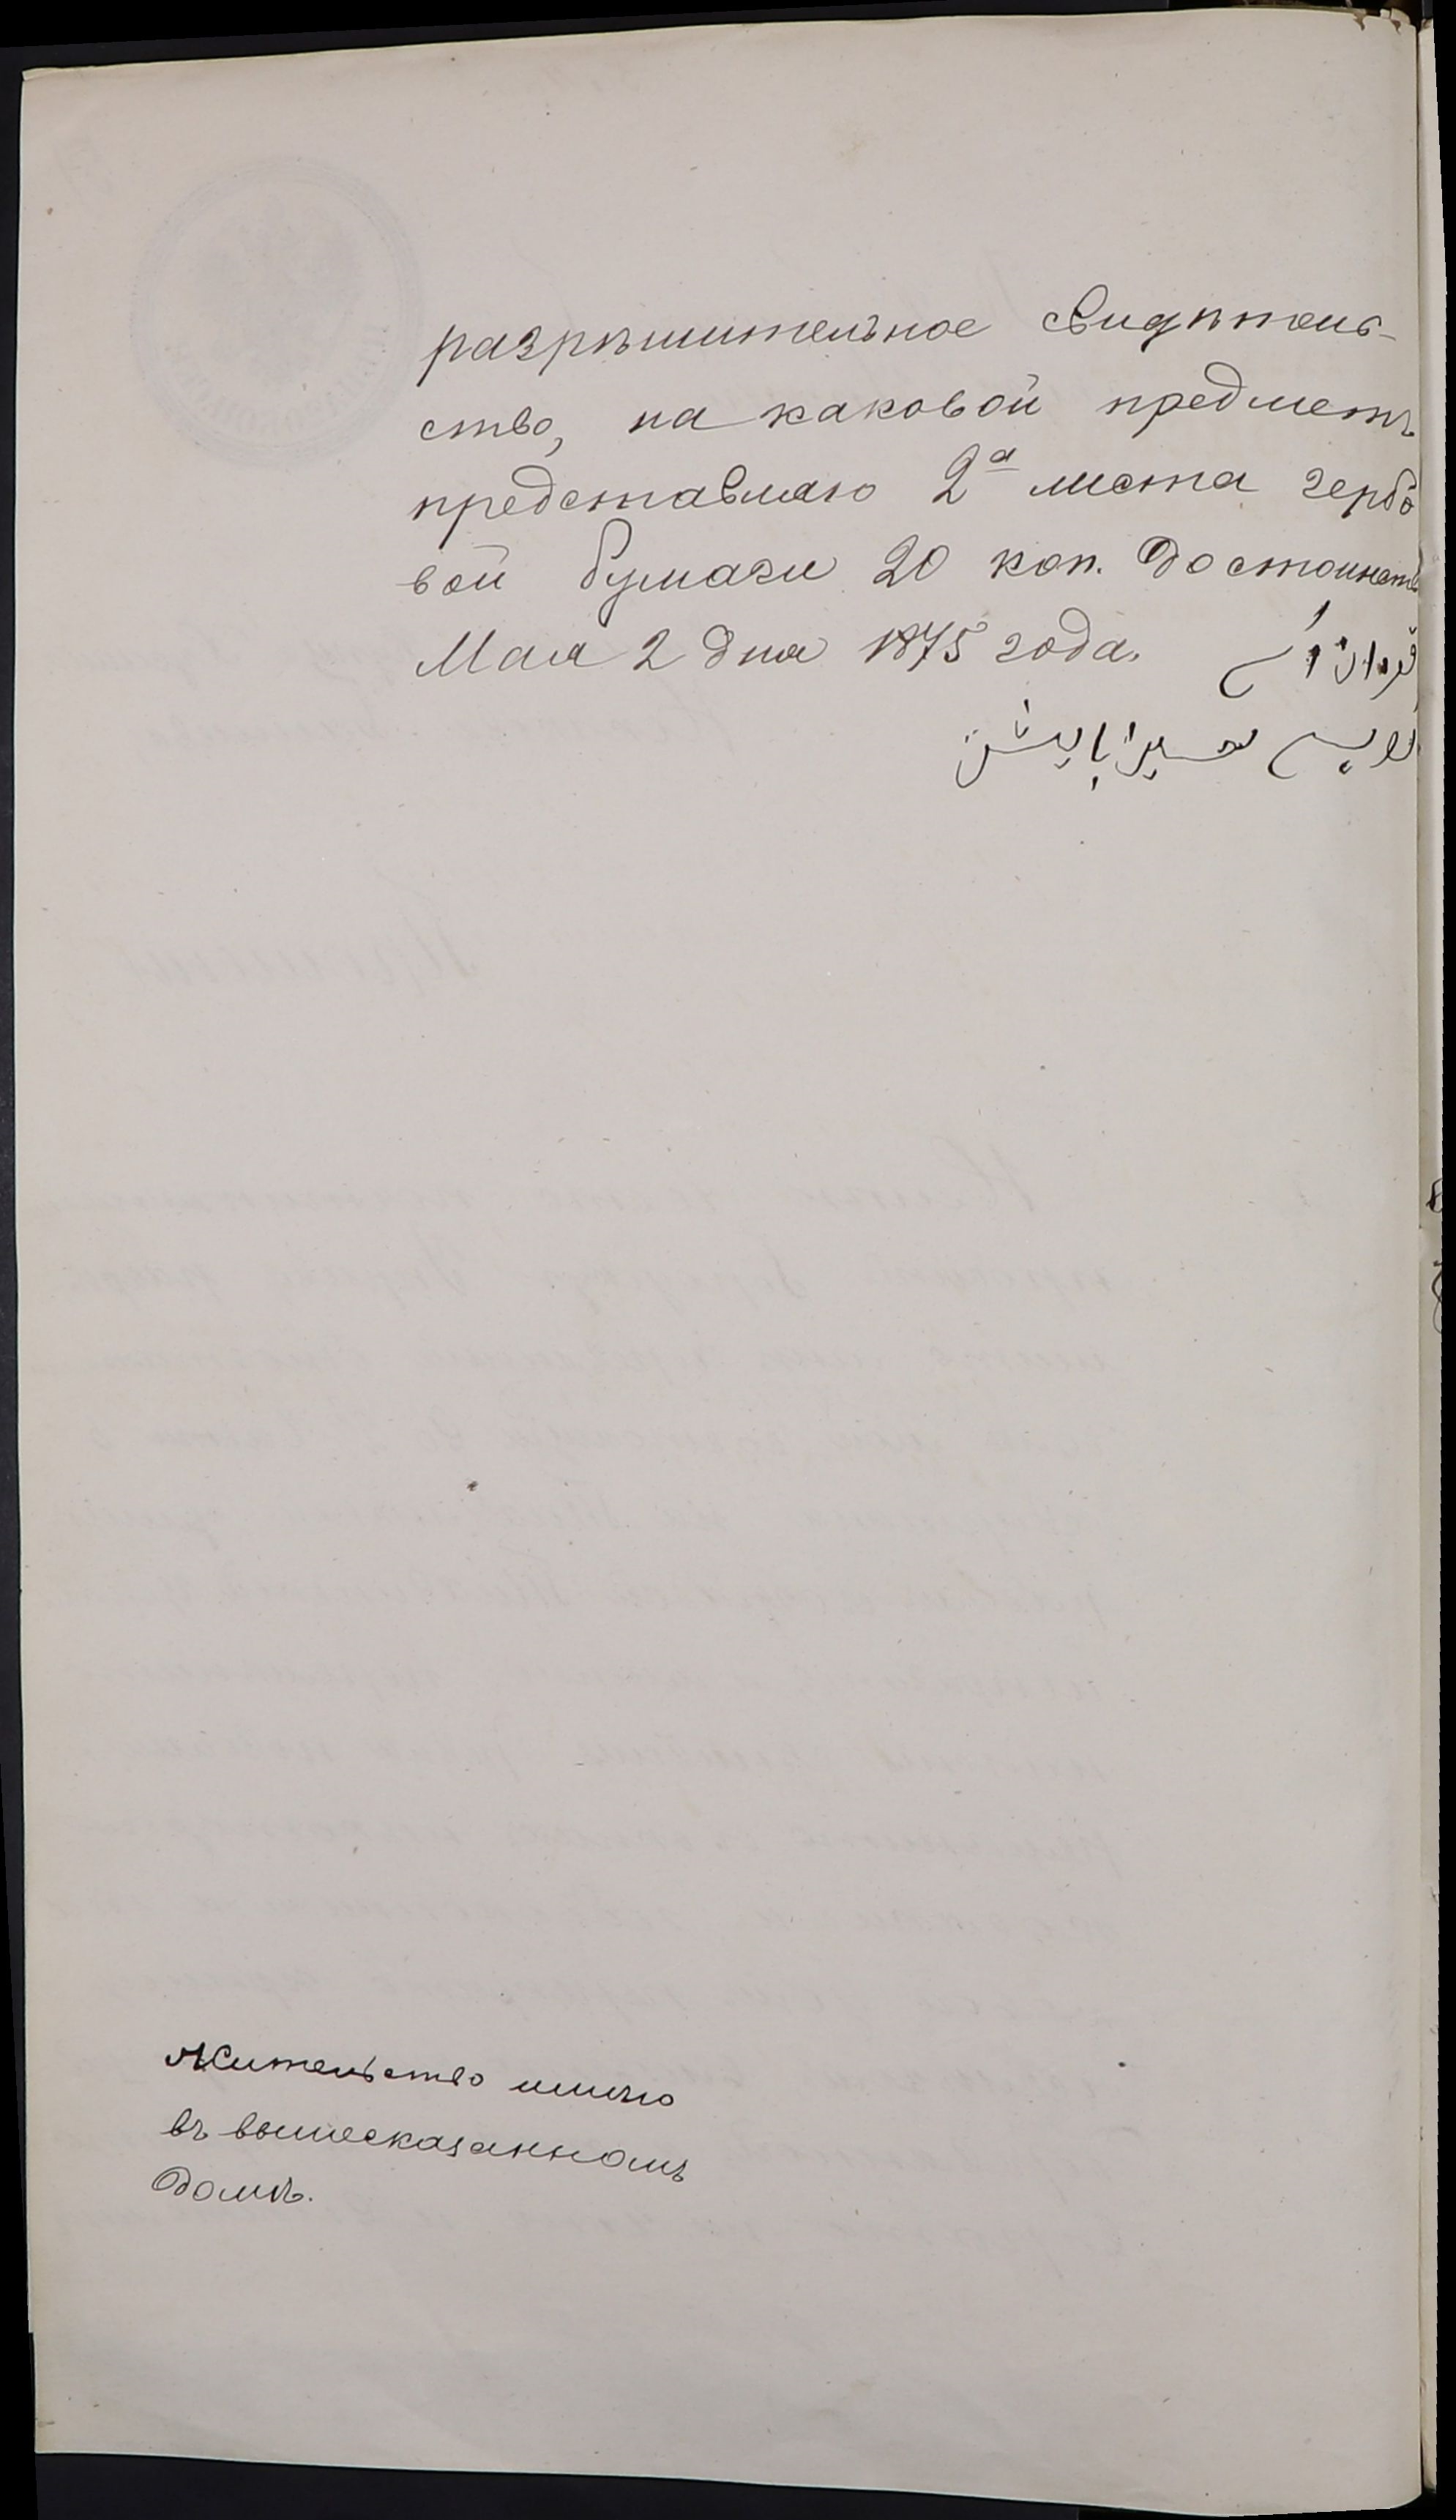 разрѣшительное свидѣтель-
ство, на каковой предметъ
представляю 2а листа гербо
вой бумаги 20 коп. достоинств
Мая 2 дня 1875 года.
Жительство имѣю
въ вышесказанномъ
домѣ.